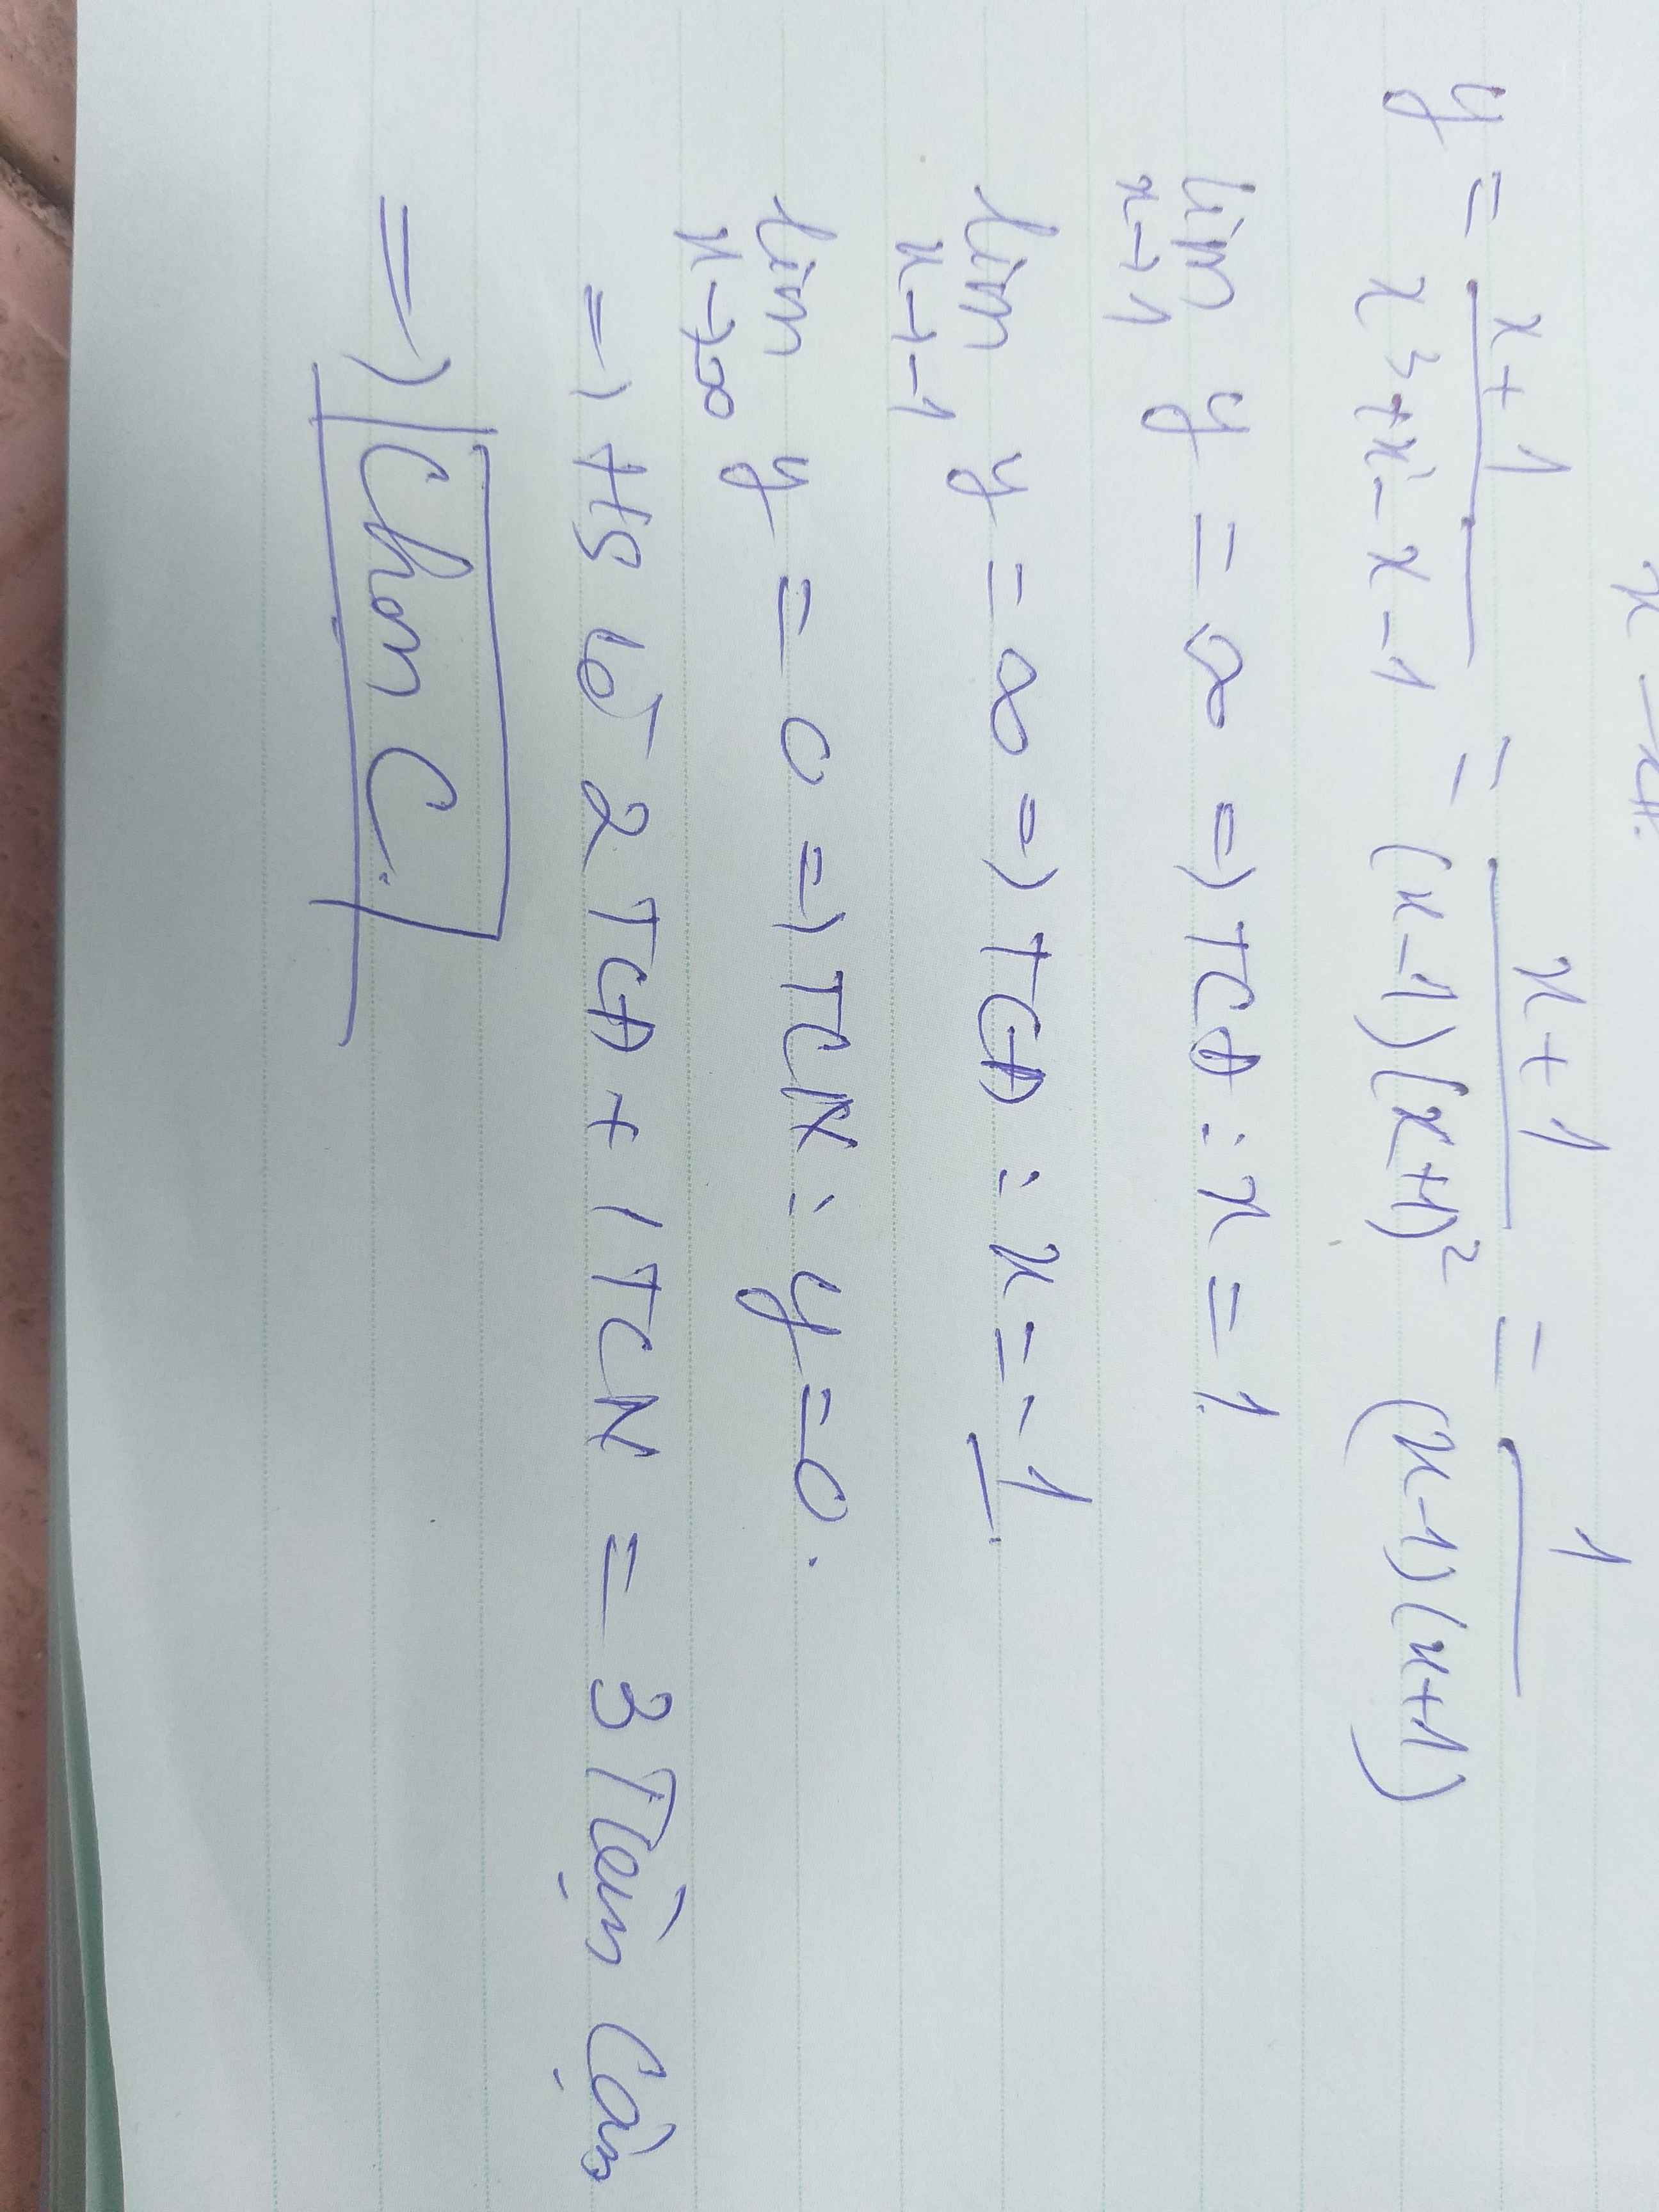 y = x+1 / x³+x²-x-1 = x+1 / (x-1)(x+1)² = 1 / (x-1)(x+1)
lim x→1 y = ∞ => TCĐ : x = 1
lim x→-1 y = ∞ => TCĐ : x = -1
lim x→∞ y = 0 => TCN : y = 0.
=> HS có 2 TCĐ + 1 TCN = 3 Tiệm Cận
=> Chọn C.